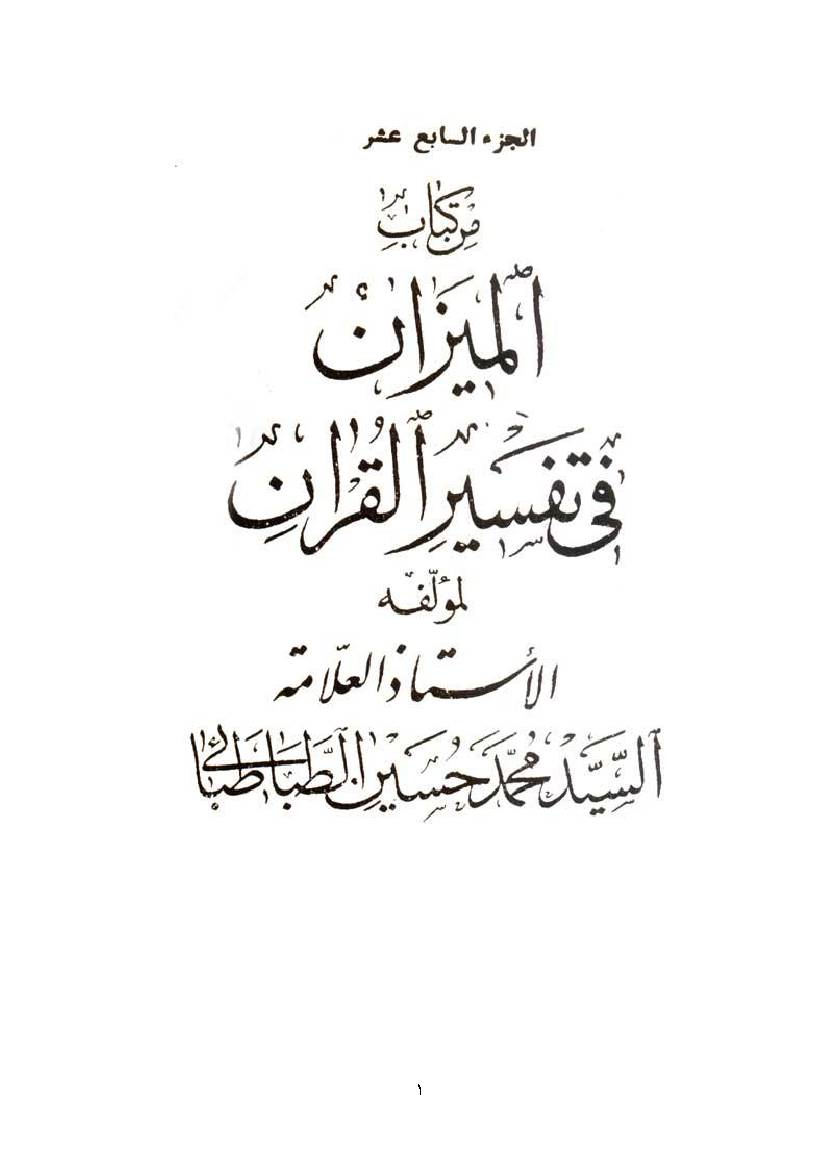 الجزء السابع عشر
من كتاب
الميزان
في تفسير القرآن
لمؤلفه
الأستاذ العلامة
السيد محمد حسين الطباطبائي
١